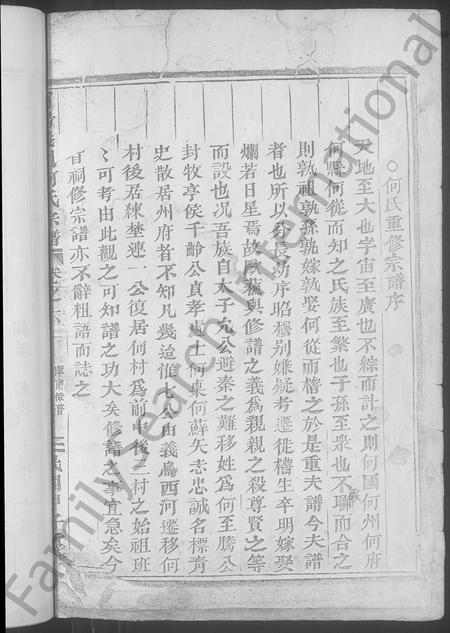 ○何氏重修宗譜序
天地至大也宇宙至廣也不綜而計之則何國何州何府
何縣何從而知之氏族至繁也子孫至衆也不聯而合之
則孰祖孰孫孰嫁孰娶何從而稽之於是重夫譜今夫譜
者也所以分長幼序昭穆别嫌疑考遷徙稽生卒明嫁娶
爛若日星焉故歐蘇與修譜之義為親親之殺尊賢之等
而設也况吾族自太子允公避秦之難移姓為何至騰公
封牧亭侯千齡公貞孝處士何東何蘇矢志忠誠名標青
史散居州府者不知凡幾這惟七公由義烏西河遷移何
村後居練塋連一公復居何村為前中後三村之始祖班
〻可考由此觀之可知譜之功大矣修譜之事宜急矣今
百祠修宗譜亦不辭粗語而誌之
何氏宗譜
FamilySearch International